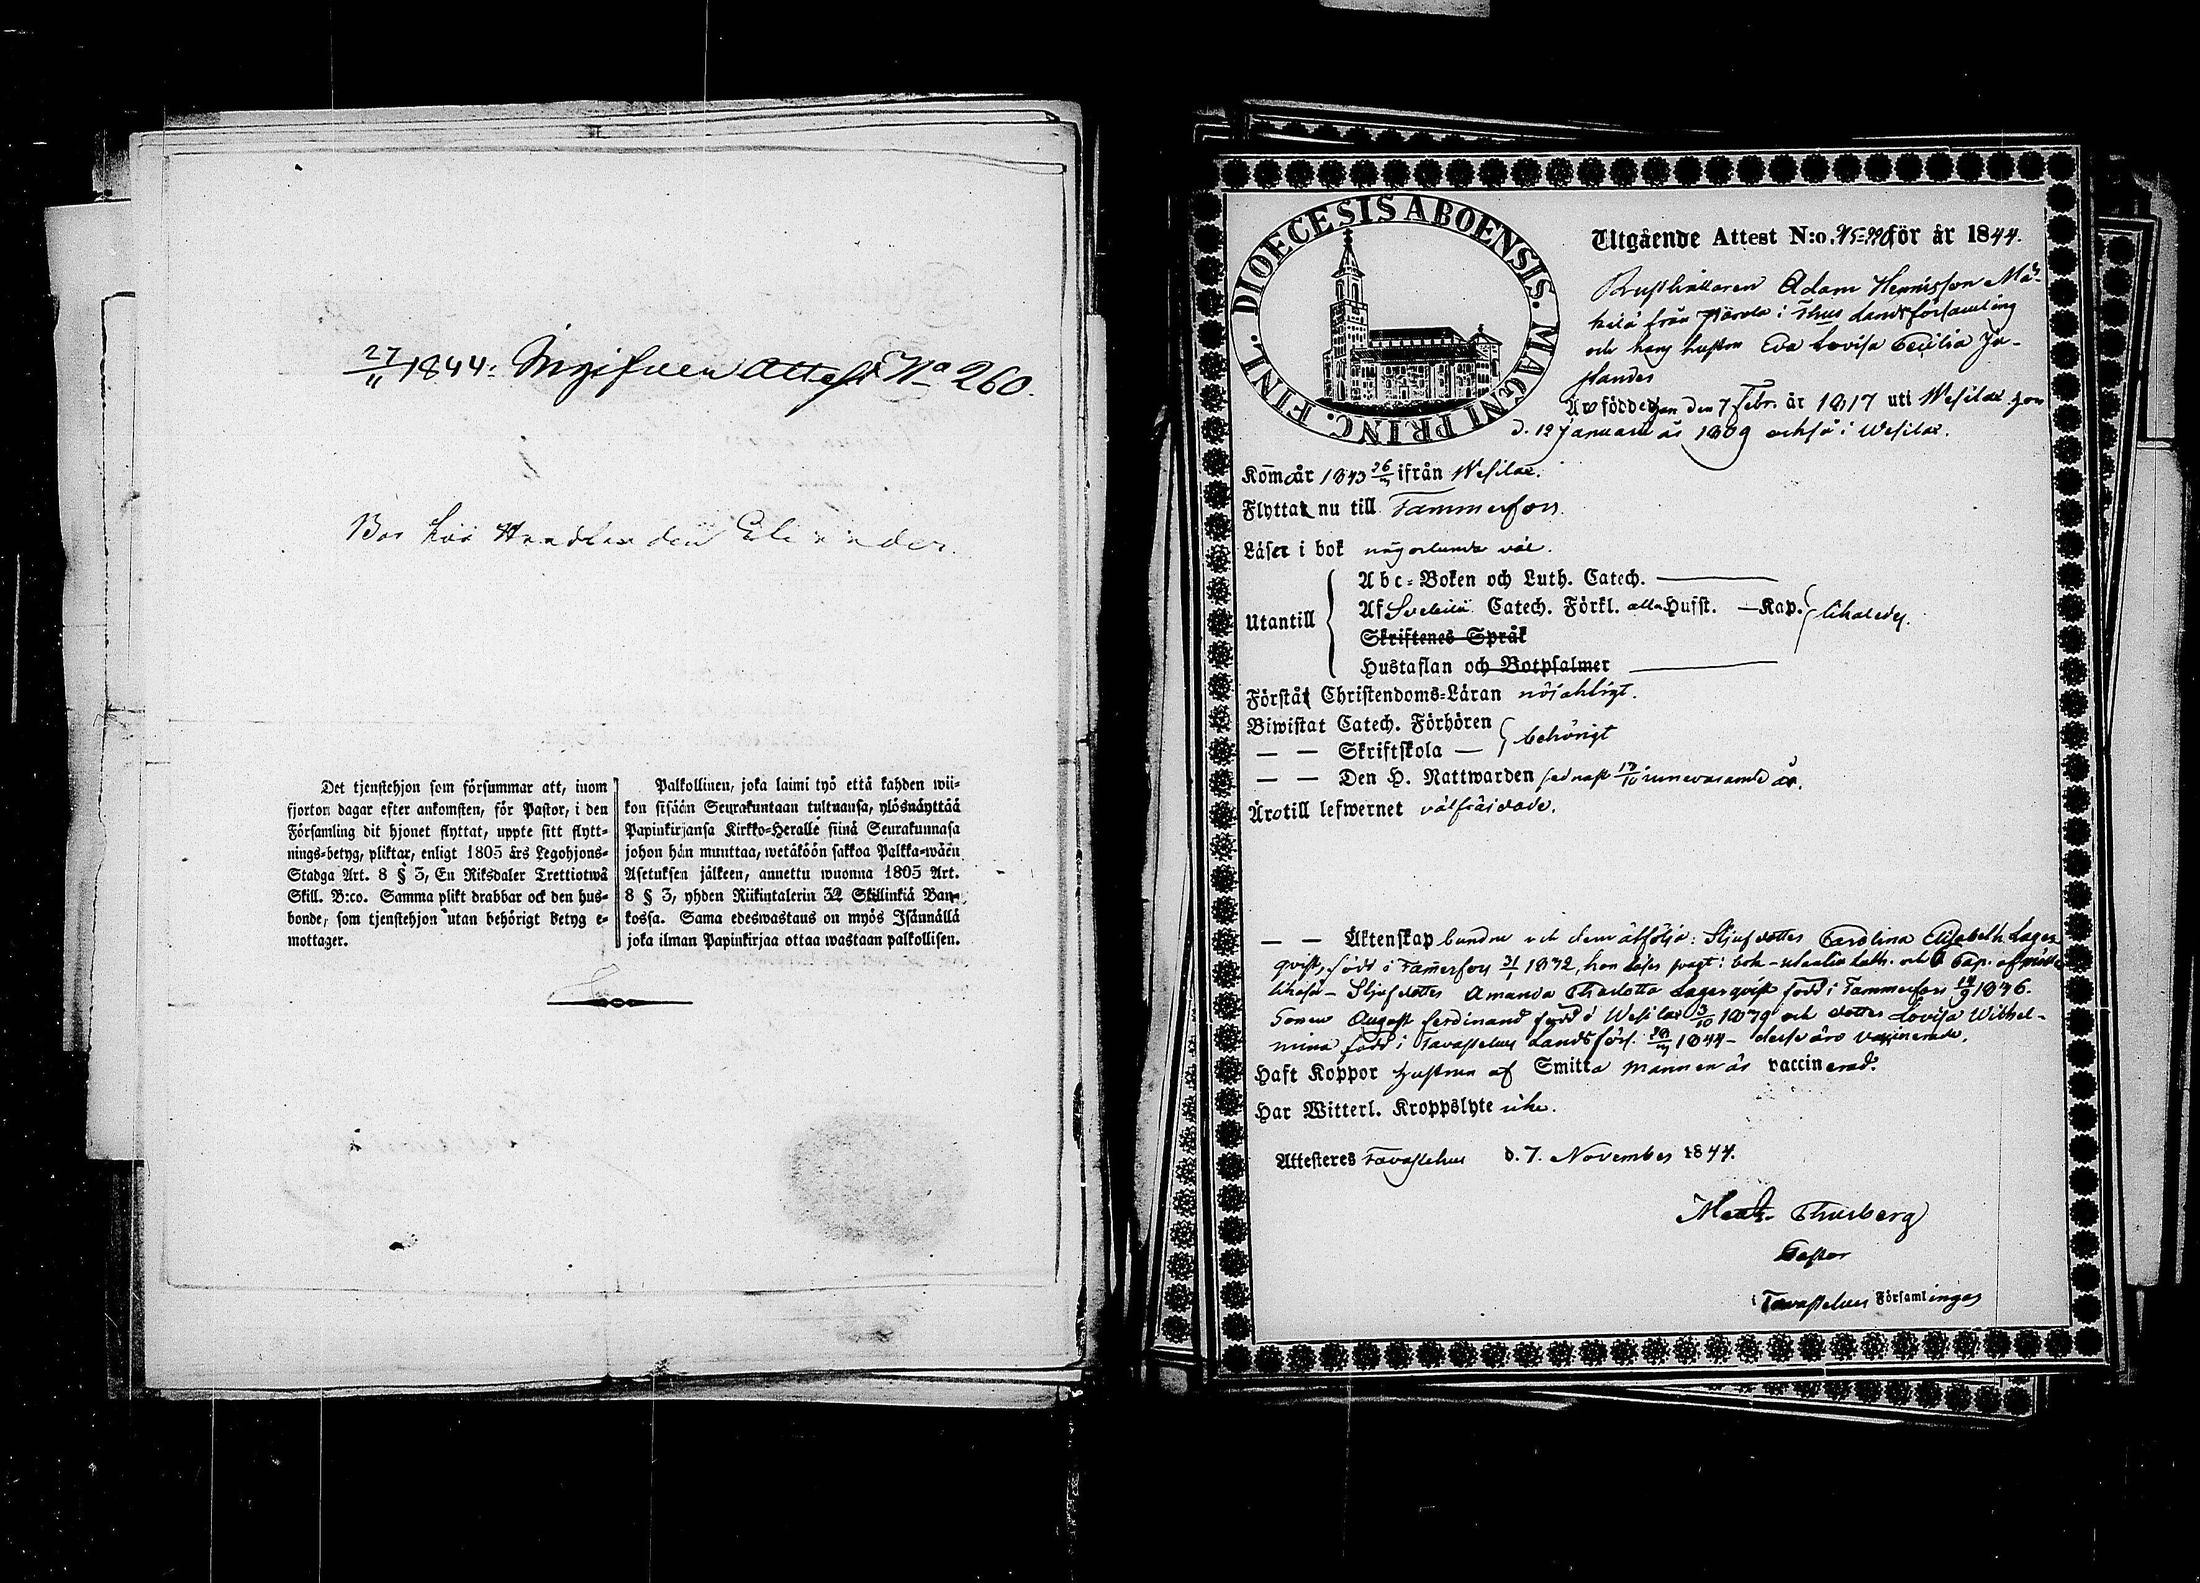 27/11 1844: Ingifven Attest No 260.
Bor hos Handlanden
Det tjenstehjon som försummar att, inom
fjorton dagar efter ankomsten, för Pastor, i den
Församling dit hjonet flyttat, uppte sitt flytt-
nings-betyg, pliktar, enligt 1805 års Legohjons-
Stadga Art. 8 § 3, En Riksdaler Trettiotwå
Skill. B:co. Samma plikt drabbar ock den hus-
bonde, som tjenstehjon utan behörigt betyg e-
mottager.
Palkollinen, joka laimi työ että kahden wii-
kon sisään Seurakuntaan tultuansa, ylösnäyttää
Papinkirjansa Kirkko-Herralle siinä Seurakunnasa
johon hän muuttaa, wetäköön sakkoa Palkka-wäen
Asetuksen jälkeen, annettu wuonna 1805 Art.
8 § 3, yhden Riikintalerin 32 Skillinkiä Ban-
kossa. Sama edeswastaus on myös Isännällä
joka ilman Papinkirjaa ottaa wastaan palkollisen.
DIOECESIS ABOENSIS. MAGNI PRINC. FINL.
Utgående Attest N:o. för år 1844.
Rusthållaren Adam Henrisson Mä-
kilä från i Thus Landsförsamling
och hans hustru Eva Lovisa Cecilia Ju-
slander
Äro födde han den 7 Febr. år 1817 uti Wesilax hon
d. 12 Januarii år 1809 också i Wesilax.
Kommo år 1843 ifrån Wesilax.
Flytta nu till Tammerfors.
Läser i bok någorlunda väl.
Utantill
Abc-Boken och Luth. Catech.
Af Svebilii Catech. Förkl. alla Husst. — Kap. likaledes.
Skriftenes Språk
Hustaflan och Botpsalmer
Förstå Christendoms-Läran nöjaktigt.
Biwistat Catech. Förhören
— — Skriftskola — behörigt
— — Den H. Nattwarden sednast 13/10 innevarande år.
Äro till lefwernet välfräjdade.
— — Äktenskap bundne och dem åtfölja: Stjufdotter Carolina Elisabeth Lager-
qvist, född i Tammerfors 31/1 1832, hon läser svagt i bok - utantill Cath. och Cap. af
likaså - Stjufdotter Amanda Charlotta Lagerqvist född i Tammerfors 1836.
Sonen August Ferdinand född i Wesilax 3/10 1839 och dotter Lovisa Wilhel-
mina född i Tavastehus Landsförs. 1844 - desse äro vaccinerade.
Haft Koppor hustrun af Smitta mannen är vaccinerad.
Har Witterl. Kroppslyte icke.
Attesteres Tavastehus d. 7. November 1844.
Thusberg
Pastor
i Tavastehus Församlingar